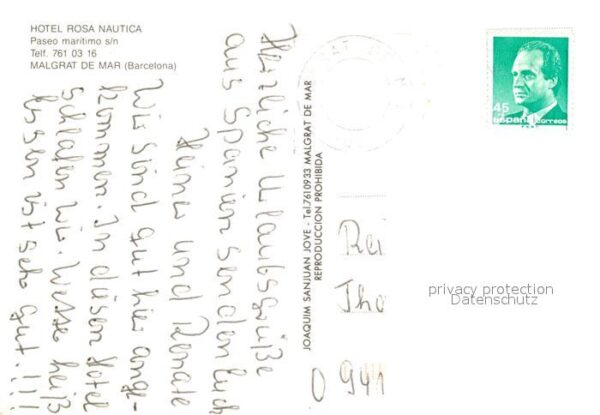 HOTEL ROSA NAUTICA
Paseo marítimo s/n
Telf. 761 03 16
MALGRAT DE MAR (Barcelona)
Herzliche Urlaubsgrüße
aus Spanien senden Euch
Heiner und Renate
Wir sind gut hier ange-
kommen. In diesen Hotel
schlafen wir. Wetter heiß
Essen ist sehr gut.!!!!
JOAQUIM SANJUAN JOVE - Tel.7610933 MALGRAT DE MAR
REPRODUCCION PROHIBIDA
45
españa correos
Rei
Tho
O 941
privacy protection
Datenschutz